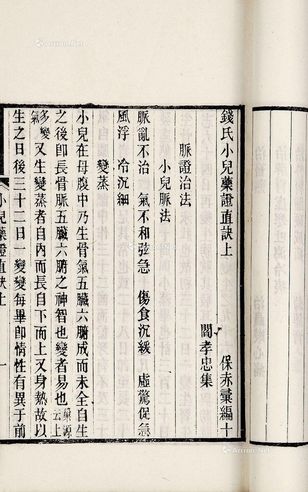 錢氏小兒藥證直訣上　保赤彙編十
閻孝忠集
脈證治法
小兒脈法
脈亂不治　氣不和弦急　傷食沉緩　虛驚促急
風浮　冷沉細
變蒸
小兒在母腹中乃生骨氣五臟六腑成而未全自生
之後即長骨脈五臟六腑之神智也變者易也巢源云上
氣多變又生變蒸者自內而長自下而上又身熱故以
生之日後三十二日一變變每畢即情性有異于前
小兒藥證直訣上　一